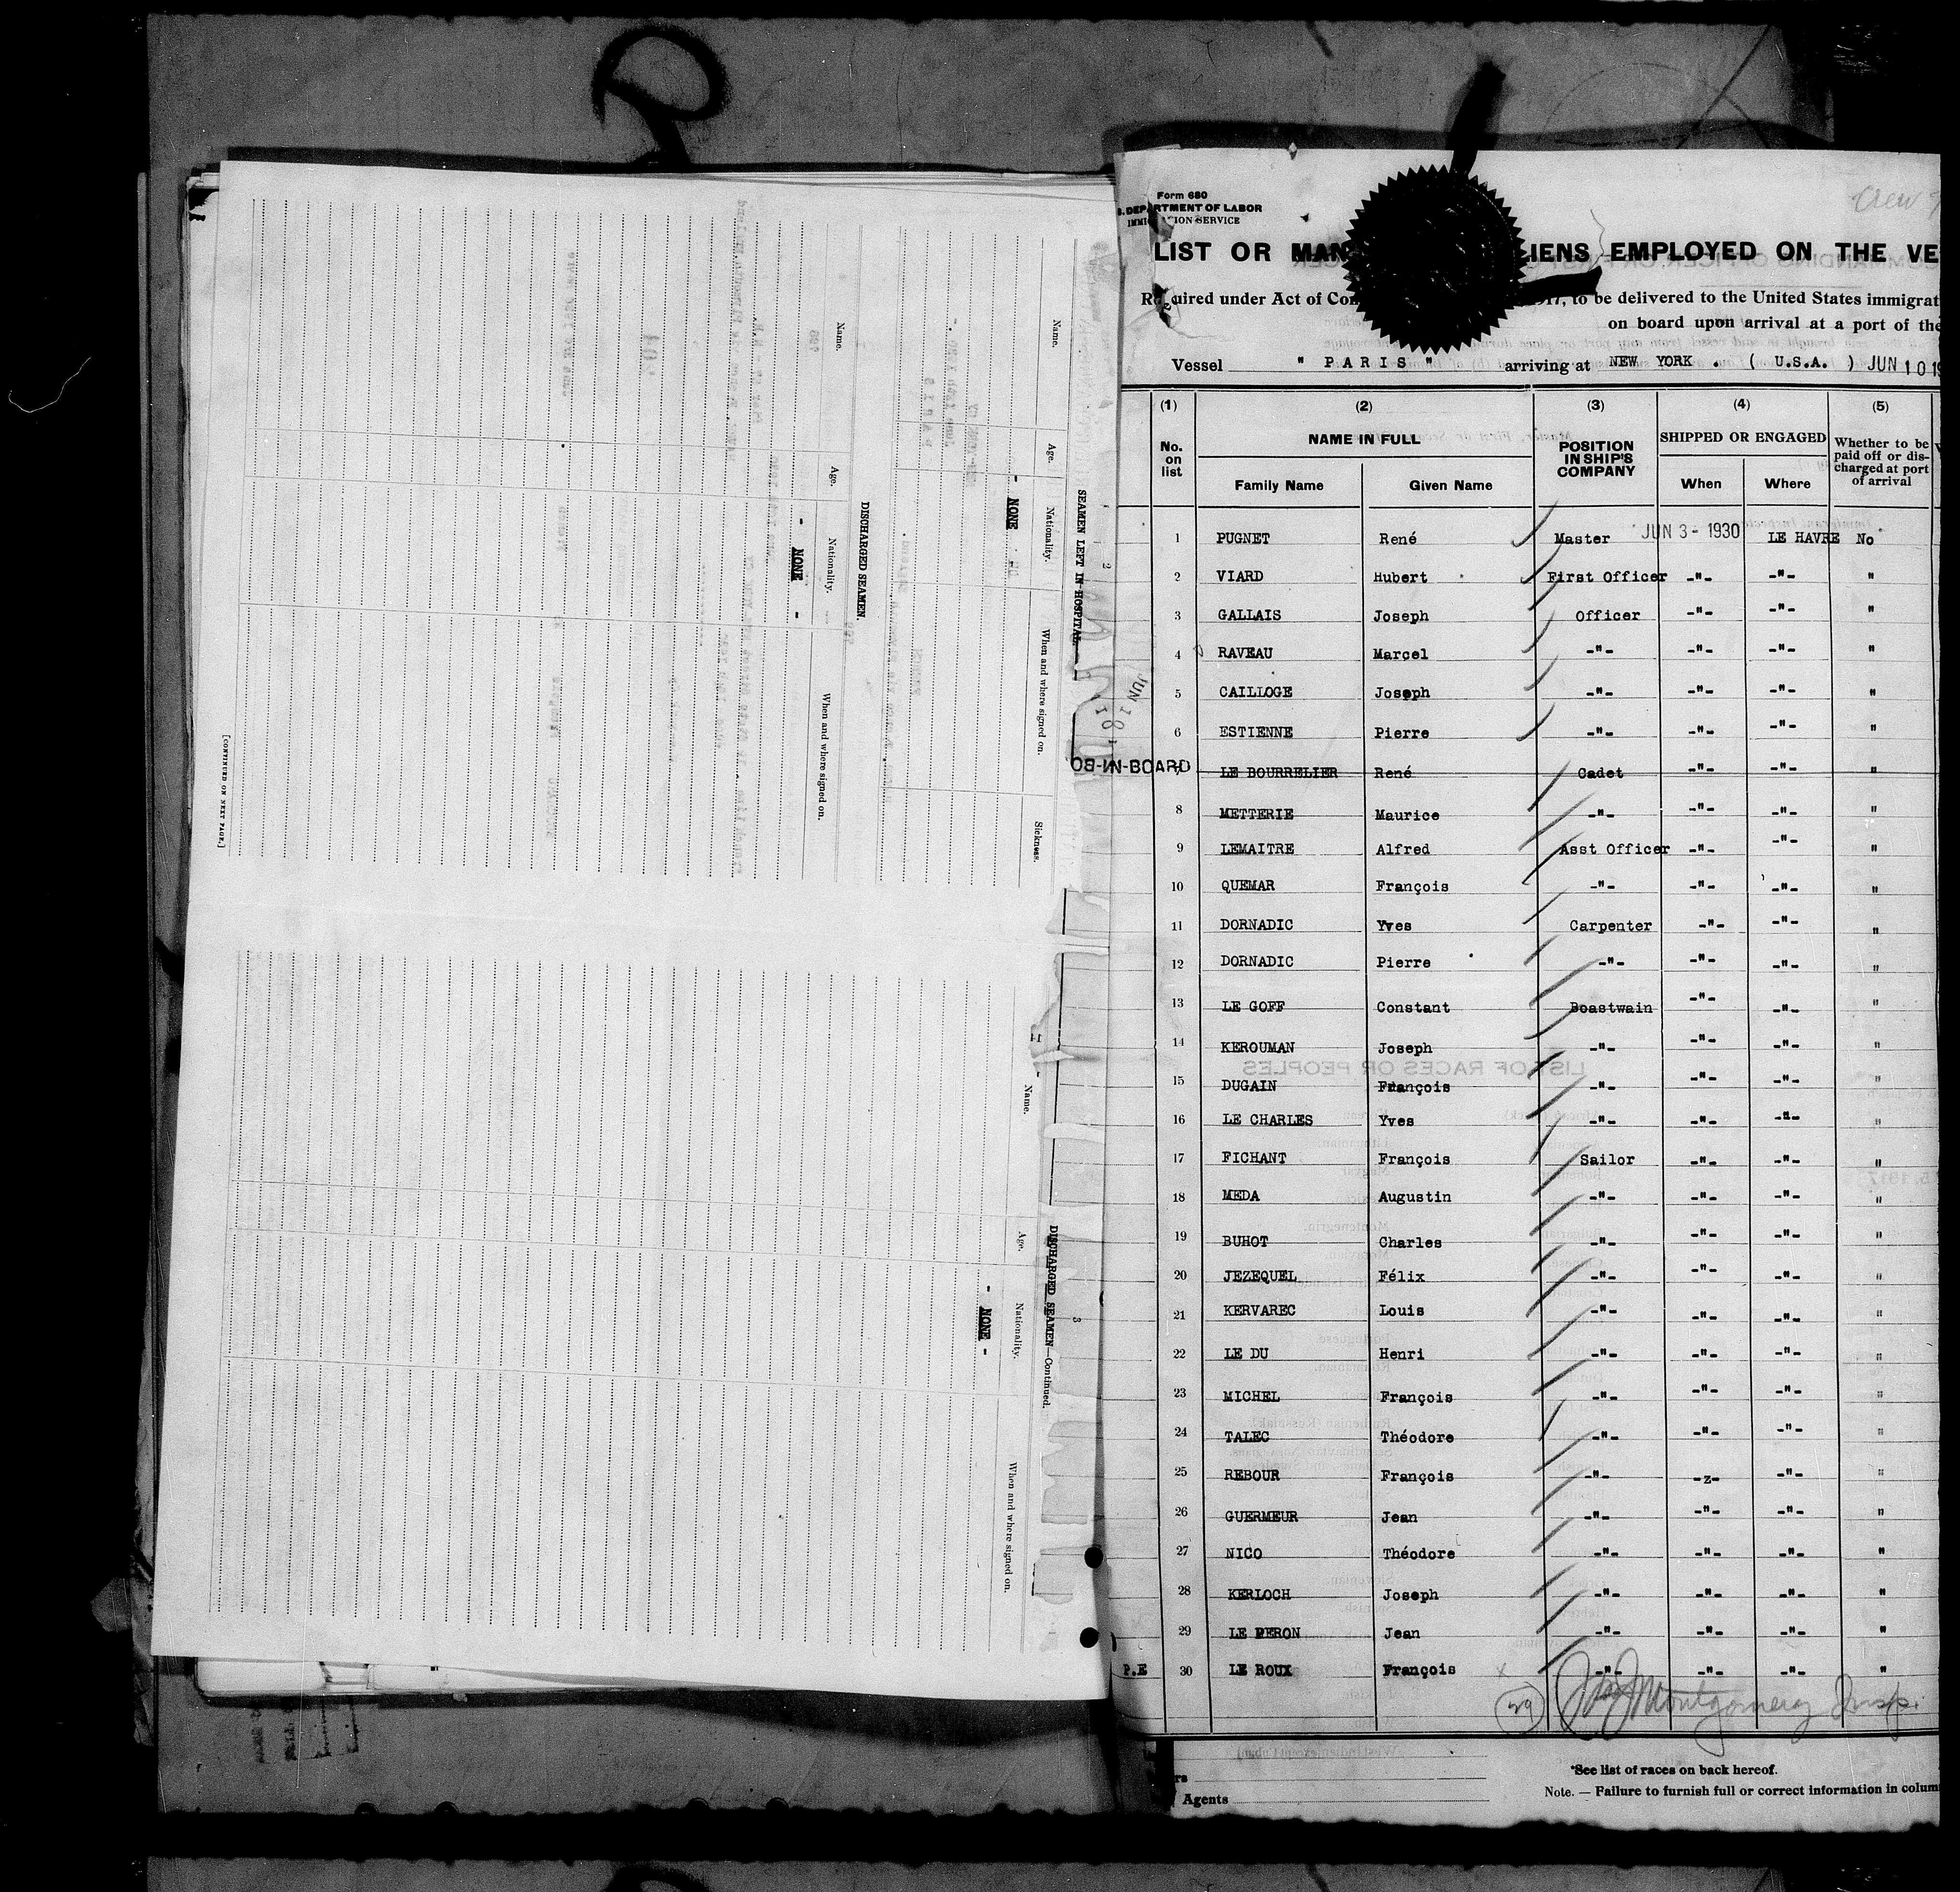 SEAMEN LEFT IN HOSPITAL
Name. Age. Nationality. When and where signed on. Sickness.
- NONE -
DISCHARGED SEAMEN.
Name. Age. Nationality. When and where signed on.
- NONE -
[CONTINUED ON NEXT PAGE.]
2
3
DISCHARGED SEAMEN—Continued.
Name. Age. Nationality. When and where signed on.
- NONE -
Form 680
DEPARTMENT OF LABOR
SERVICE
LIST OR MAN IENS EMPLOYED ON THE VE
uired under Act of Con 1917, to be delivered to the United States immigrat
on board upon arrival at a port of the
Vessel " PARIS " arriving at NEW YORK . ( U.S.A. ) JUN 10 19
(1) (2) (3) (4) (5)
No. on list NAME IN FULL POSITION IN SHIP'S COMPANY SHIPPED OR ENGAGED Whether to be paid off or discharged at port of arrival
Family Name Given Name When Where
1 PUGNET René Master JUN 3 - 1930 LE HAVRE No
2 VIARD Hubert First Officer -"- -"- "
3 GALLAIS Joseph Officer -"- -"- "
4 RAVEAU Marcel -"- -"- -"- "
5 CAILLOGE Joseph -"- -"- -"- "
6 ESTIENNE Pierre -"- -"- -"- "
LE BOURRELIER René Cadet -"- -"- "
8 METTERIE Maurice -"- -"- -"- "
9 LEMAITRE Alfred Asst Officer -"- -"- "
10 QUEMAR François -"- -"- -"- "
11 DORNADIC Yves Carpenter -"- -"- "
12 DORNADIC Pierre -"- -"- -"- "
13 LE GOFF Constant Boastwain -"- -"- "
14 KEROUMAN Joseph -"- -"- -"- "
15 DUGAIN François -"- -"- -"- "
16 LE CHARLES Yves -"- -"- -"- "
17 FICHANT François Sailor -"- -"- "
18 MEDA Augustin -"- -"- -"- "
19 BUHOT Charles -"- -"- -"- "
20 JEZEQUEL Félix -"- -"- -"- "
21 KERVAREC Louis -"- -"- -"- "
22 LE DU Henri -"- -"- -"- "
23 MICHEL François -"- -"- -"- "
24 TALEC Théodore -"- -"- -"- "
25 REBOUR François -"- -z- -"- "
26 GUERMEUR Jean -"- -"- -"- "
27 NICO Théodore -"- -"- -"- "
28 KERLOCH Joseph -"- -"- -"- "
29 LE PERON Jean -"- -"- -"- "
P.E 30 LE ROUX François -"- -"- -"- "
29 Montgomery Insp.
*See list of races on back hereof.
Note. — Failure to furnish full or correct information in colum
Agents